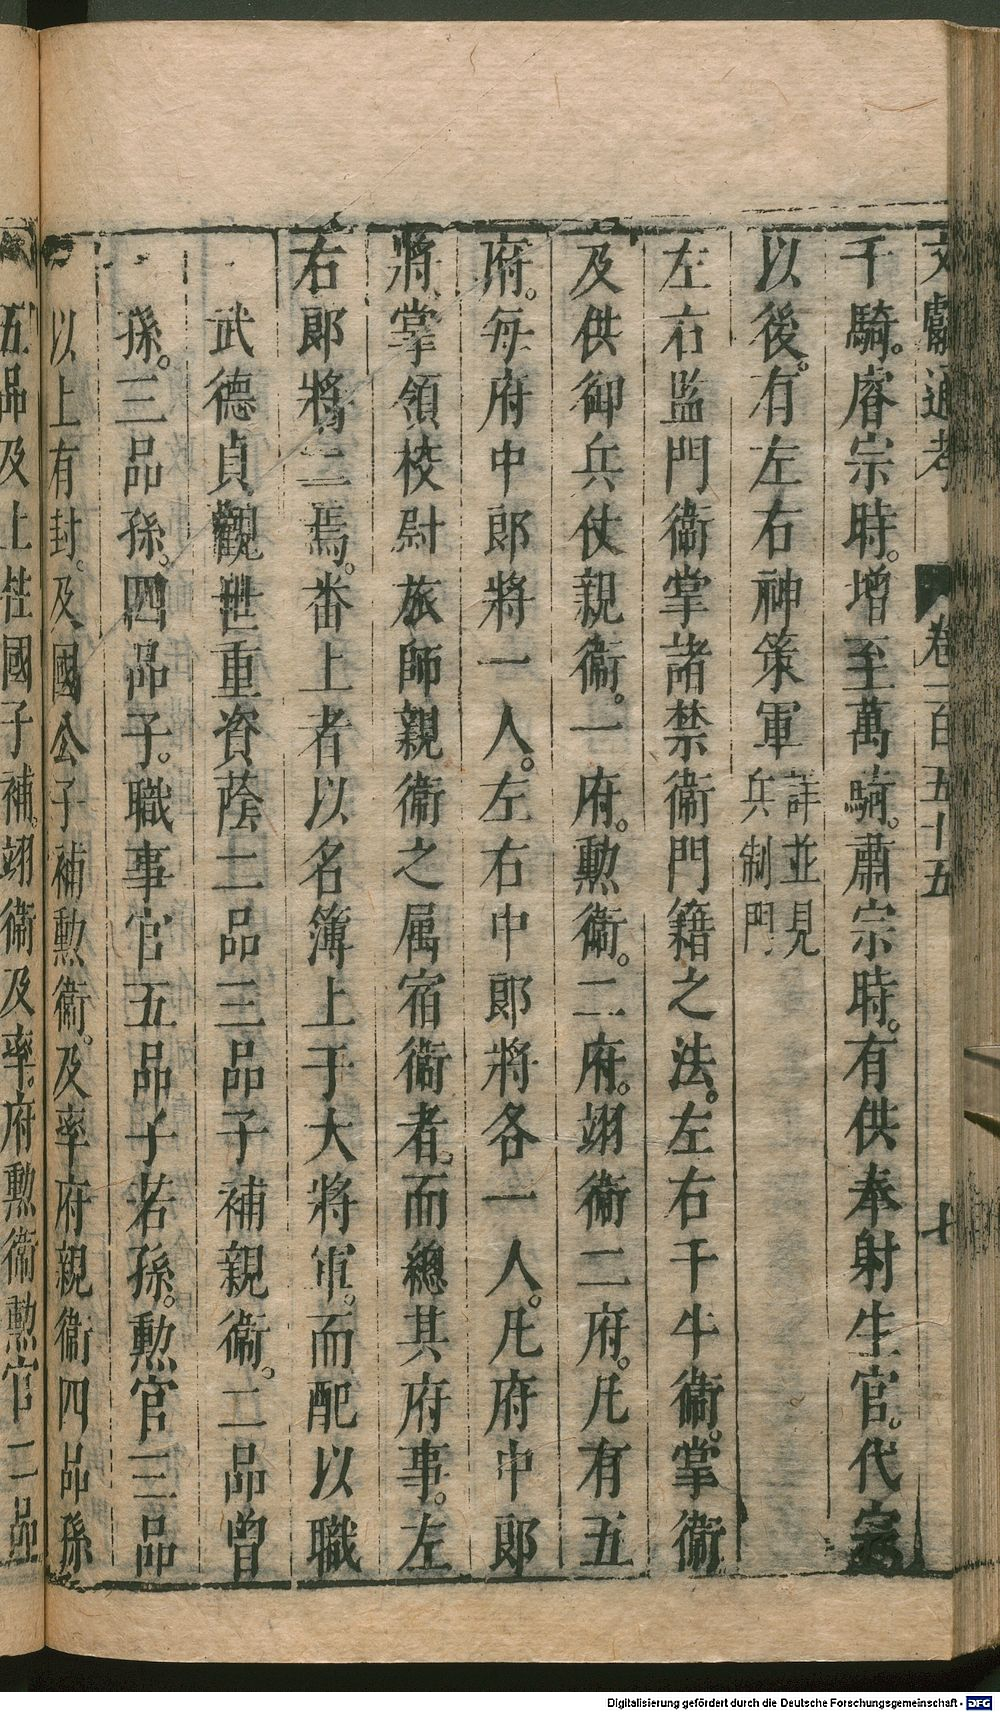 文獻通考 卷一百五十五 七
千騎。睿宗時。增至萬騎。肅宗時。有供奉射生官。代宗
以後。有左右神策軍詳並見兵制門
左右監門衞掌諸禁衞門籍之法。左右千牛衞。掌衞
及供御兵仗親衞。一府。勲衞。二府。翊衞二府。凡有五
府。每府中郎將一人。左右中郎將各一人。凡府中郎
將掌領校尉旅師親衞之属宿衞者。而總其府事。左
右郎將二焉。番上者以名簿上于大將軍。而配以職
武德貞觀世重資蔭二品三品子補親衞。二品曾
孫。三品孫。四品子。職事官五品子若孫。勲官三品
以上有封。及國公子補勲衞。及率府親衞四品孫
五品及上柱國子補。翊衞及率。府勲衞勲官二品
Digitalisierung gefördert durch die Deutsche Forschungsgemeinschaft - DFG